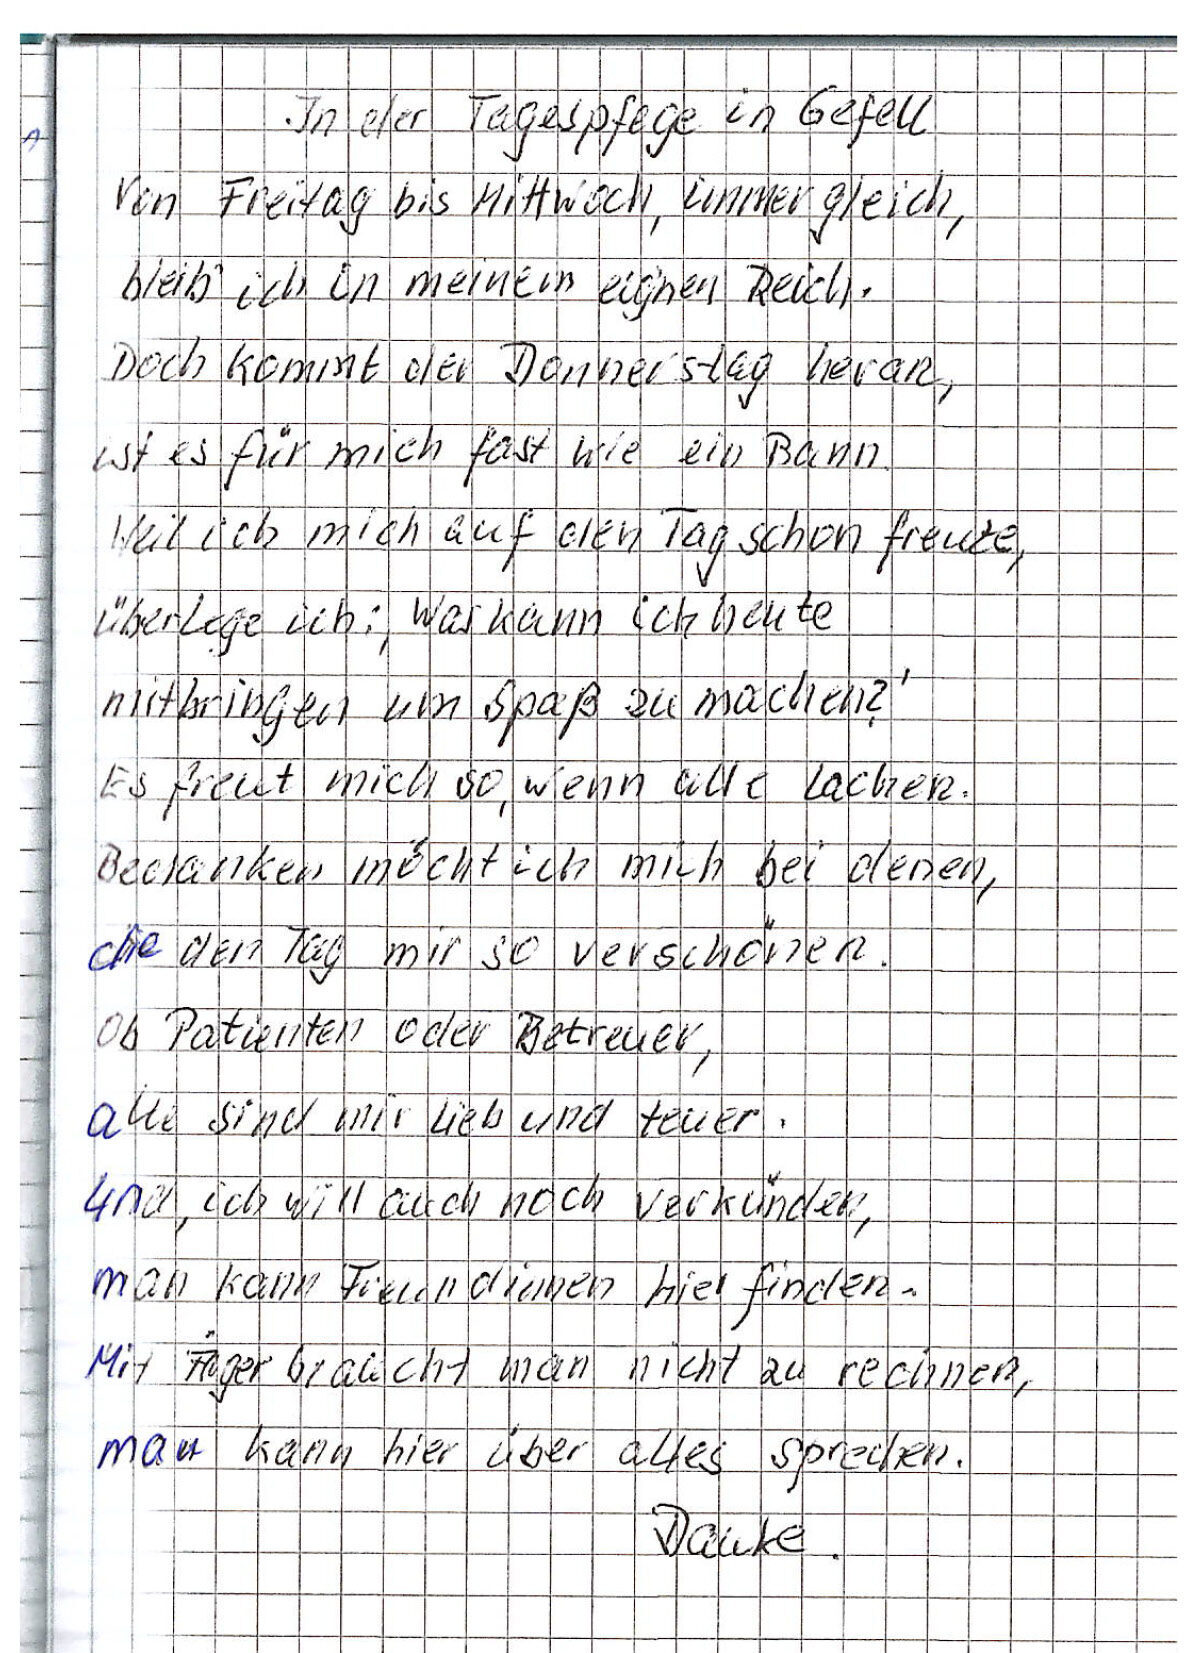 In der Tagespfege in Gefell
Von Freitag bis Mittwoch, immer gleich,
bleib' ich in meinem eignen Reich.
Doch kommt der Donnerstag heran,
ist es für mich fast wie ein Bann.
Weil ich mich auf den Tag schon freute,
überlege ich:, Was kann ich heute
mitbringen um Spaß zu machen?'
Es freut mich so, wenn alle lachen.
Bedanken möcht ich mich bei denen,
die den Tag mir so verschönen.
Ob Patienten oder Betreuer,
alle sind mir lieb und teuer.
Und, ich will auch noch verkünden,
man kann Freundinnen hier finden.
Mit Ärger braucht man nicht zu rechnen,
man kann hier über alles sprechen.
Danke.